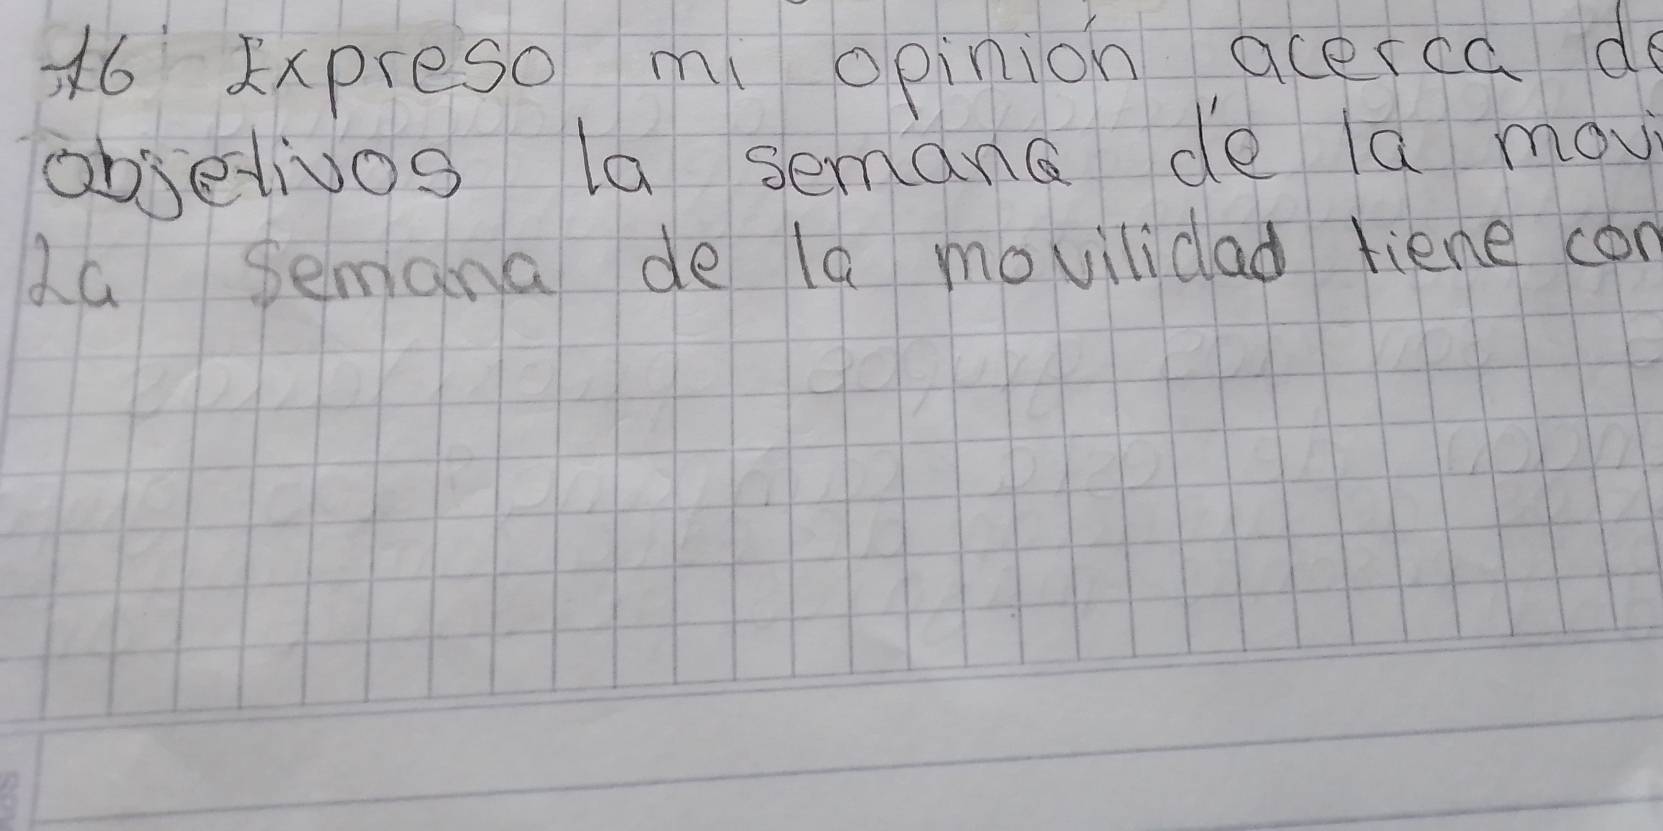 16 Expreso mi opinión acerca de
objetivos la semana de la movi
La semana de la movilidad tiene con